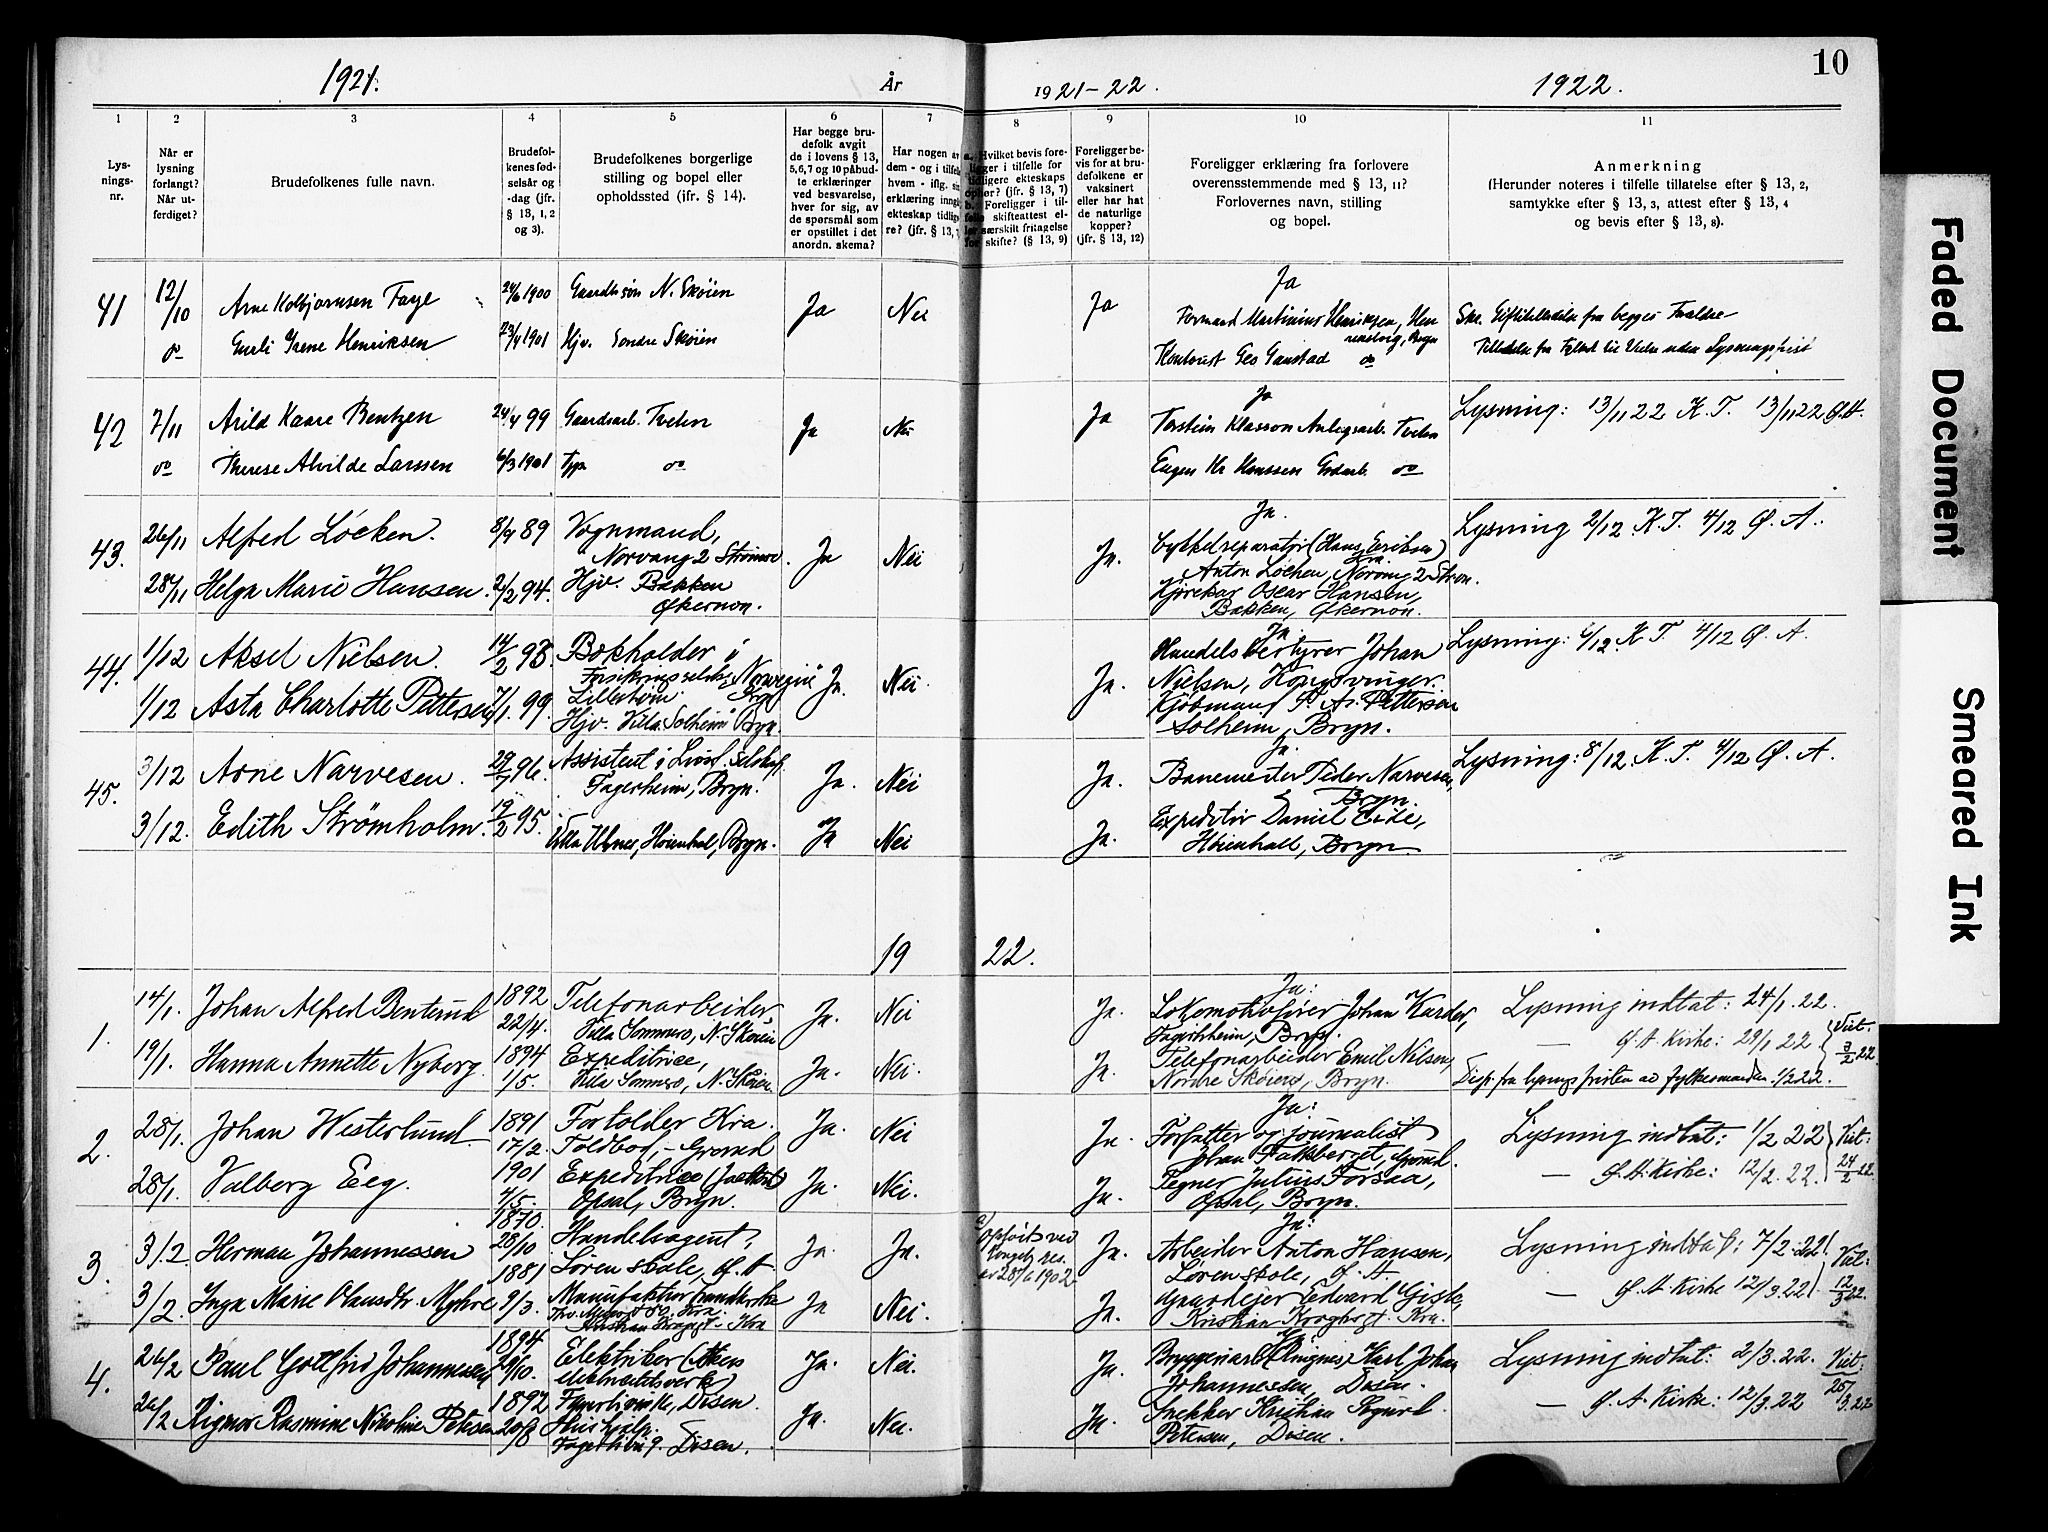 10
1921.
År
1921-22.
1922.
1 2 3 4 5 6 7 8 9 10 11
Lys-
nings-
nr.
Når er
lysning
forlangt?
Når ut-
ferdiget?
Brudefolkenes fulle navn.
Brudefol-
kenes fød-
selsår og
-dag (jfr.
§ 13, 1, 2
og 3).
Brudefolkenes borgerlige
stilling og bopel eller
opholdssted (ifr. § 14).
Har begge bru-
defolk avgit
de i lovens § 13,
5,6,7 og 10 påbud-
te erklæringer
ved besvarelse,
hver for sig, av
de spørsmål som
er opstillet i det
anordn. skema?
Har nogen av
dem - og i tilfelle
hvem - iflg.
erklæring inngåt
ekteskap tidlige-
re? (jfr. § 13,
a. Hvilket bevis fore-
ligger i tilfelle for
tidligere ekteskaps
ophør? (jfr. § 13, 7)
b. Foreligger i til-
felle skifteattest el-
ler særskilt fritagelse
for skifte? (§ 13, 9)
Foreligger be-
vis for at bru-
defolkene er
vaksinert
eller har hat
de naturlige
kopper?
(jfr. § 13, 12)
Foreligger erklæring fra forlovere
overensstemmende med § 13, 11?
Forlovernes navn, stilling
og bopel.
Anmerkning
(Herunder noteres i tilfelle tillatelse efter § 13, 2,
samtykke efter § 13, 3, attest efter § 13, 4
og bevis efter § 13, 8).
41 12/10 Arne Kolbjørnsen Faye 24/6 1900 N. Skøien Ja Nei Ja Ja
Irene Henriksen 23/4 1901 Hjv. Søndre Skøien
Formand Martinius Henriksen, Bryn
Geo Gaustad do
fra begges Forældre
42 7/11 Arild Kaare Bentzen 24/4 99 Gaardsarb. Tveten Ja Nei Ja Ja
do Therese Alvilde Larssen 6/3 1901 do
Torstein Klasson Anlegsarb. Tveten
Eugen Kr Hanssen do
Lysning: 13/11 22 K. T. 13/11 22 Ø.A.
43. 26/11 Alfred Løcken. 8/4 89 Vognmand, Ja Nei Ja. Ja.
Norvang 2 Strømsv.
28/11 Helga Marie Hansen. 2/2 94. Hjv. Bakken
Økernon.
Cykkelreparatør (Hans Eriksen)
Anton Løchen, Norvang 2 Strøm.
Kjørekar Oscar Hansen,
Bakken, Økernon.
Lysning 2/12. K.T. 4/12 Ø. A.
44. 1/12 Aksel Nielsen. 14/2 93. Bokholder i Ja. Nei. Ja. Ja
Norwegia
Lillestrøm.
1/12 Asta Charlotte Pettersen 7/1. 99. Hjv. Villa Solheim Bryn.
Handelsbestyrer Johan
Nielsen, Kongsvinger.
Kjøbmand P. A. Pettersen
Solheim, Bryn.
Lysning: 6/12. K T. 4/12 Ø. A.
45. 3/12 Arne Narvesen. 29/7 96. Assistent i Livsf. selskap. Ja. Nei Ja. Ja.
Fagerheim, Bryn.
3/12. Edith Strømholm. 19/2 95. Høienhal, Bryn. Ja Nei Ja.
Banemester Peder Narvesen,
Bryn.
Expeditør Daniel Eide,
Høienhall, Bryn.
Lysning: 8/12. K. T. 4/12 Ø. A.
19 22.
1. 14/1. Johan Alfred Benterud 1892 22/4. Telefonarbeider, Ja. Nei Ja. Ja:
Villa Sommero, N. Skøien
19/1. Hanna Annette Nyborg. 1894 1/5. Expeditrice, Ja. Nei. Ja.
Villa Sommero, N. Skøien.
Lokomotivfører Johan Karder,
Fagerheim, Bryn.
Telefonarbeider Emil Nilsen,
Nordre Skøien, Bryn.
Lysning indtat: 24/1. 22.
— Ø. A. Kirke: 29/1 22 Viet. 3/2 22.
Disp. fra lysningsfristen av fylkesmanden 1/2 22.
2. 28/1. Johan Westerlund 1891 17/2. Fortolder Kra. Ja. Nei Ja. Ja:
Toldbod, – Grorud
28/1. Valberg Eeg. 1901 4/5. Expeditrice Ja. Nei. Ja.
Opsal, Bryn.
Forfatter og journalist
Johan Falkberget, Grorud.
Tegner Julius Forsaa,
Opsal, Bryn.
Lysning indtat: 1/2 22 Viet: 24/2 22.
— Ø. A. Kirke: 12/2. 22.
3. 3/2. Herman Johannessen 1870. 28/10. Handelsagent, Ja. Ja. Ja. Ja:
Løren skole, Ø. A.
3/2. Inga Marie Olausdtr. Myhre 1881 9/3. Ja Nei. Ja.
Kristian Krogsgt. Kra
a) opløst ved
Kongel. res.
av 28/6 1902
Arbeider Anton Hansen,
Løren skole, Ø. A
Gaardejer Edvard
Kristian Krogsgt. Kra.
Lysning indtat: 7/2. 22. Viet: 12/3 22.
— Ø. A. Kirke 12/3. 22
4. 26/2 Paul Gottfrid Johannessen 1894 29/10. Elektriker (Akers Ja. Nei. Ja. Ja
elektricitetsverk)
Disen.
26/2 Rigmor Rasmine Nikoline Petersen 1892 20/8 Ja. Nei. Ja.
Fagerlivn 9. Disen.
Bryggeriarb. (Ringnes) Karl Johan
Johannessen, Disen.
Snekker Kristian Sigurd
Petersen, Disen.
Lysning indtat: 2/3. 22. Viet: 25/3. 22
— Ø. A. Kirke: 12/3. 22
Faded Document
Smeared Ink